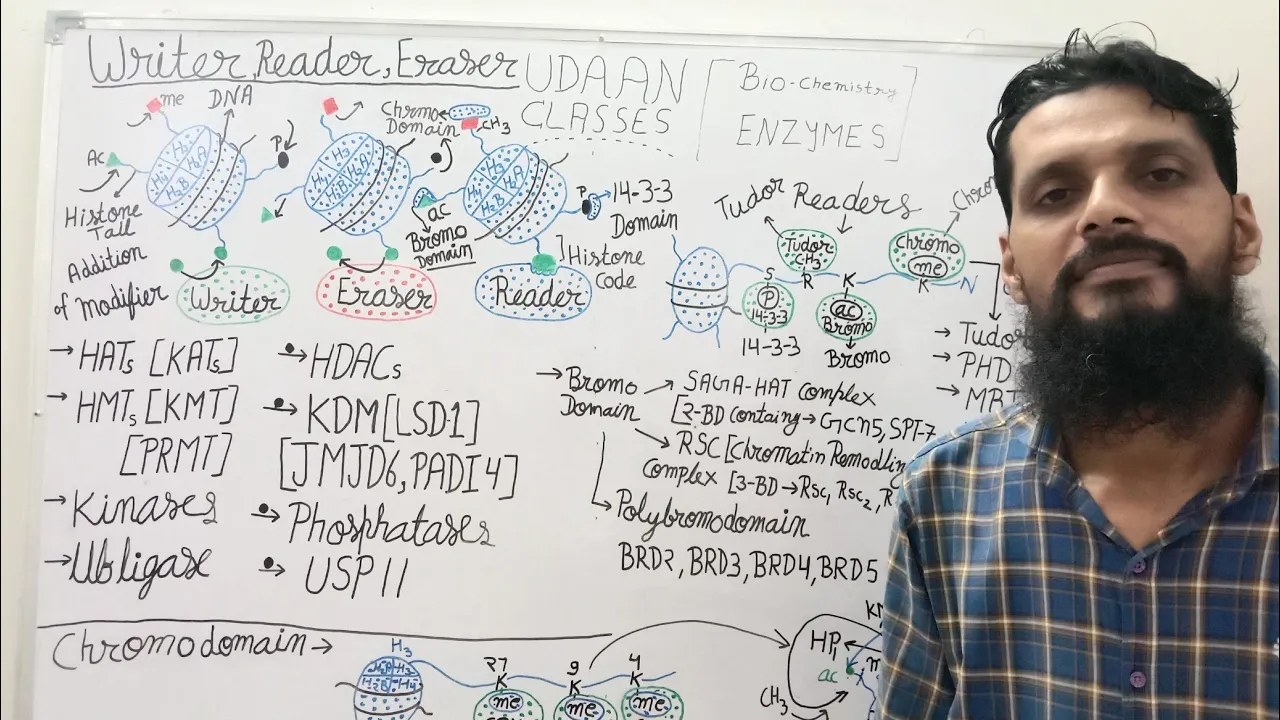 Writer, Reader, Eraser
UDAAN
CLASSES
[Bio-Chemistry
ENZYMES]
me
DNA
Ac
P
H3
H2A
H4
H2B
Histone
Tail
Addition
of Modifier
Writer
H3
H2A
H4
H2B
Eraser
Chrmo
Domain
CH3
H3
H2A
H4
H2B
ac
Bromo
Domain
P
14-3-3
Domain
Histone
Code
Reader
Tudor Readers
Tudor
CH3
Chromo
me
S
R
K
K
N
P
14-3-3
14-3-3
ac
Bromo
Bromo
→ Tudor
→ PHD
→ HATs [KATs]
→ HMTs [KMT]
[PRMT]
→ Kinases
→ Ub ligase
→ HDACs
→ KDM [LSD1]
[JMJD6, PADI4]
→ Phosphatases
→ USP11
→ Bromo
Domain
→ SAGA-HAT Complex
[2-BD Containg → GCN5, SPT-7
→ RSC [Chromatin Remodling
Complex [3-BD → Rsc1, Rsc2, R
→ Polybromodomain
BRD2, BRD3, BRD4, BRD5
Chromodomain →
H3
H2A
H3
H2B
H4
27
K
me
9
K
me
4
K
me
HP1
ac
CH3